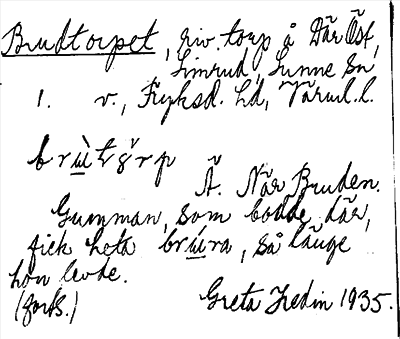 Brudtorpet, riv. torp å Där Öst,
Simrud, Sunne sn
1. v., Fryksd. hd, Värml. l.
brùtörp
Ä. När Bruden.
Gumman, som bodde där,
fick heta brúra, så länge
hon levde.
(forts.) Greta Hedin 1935.